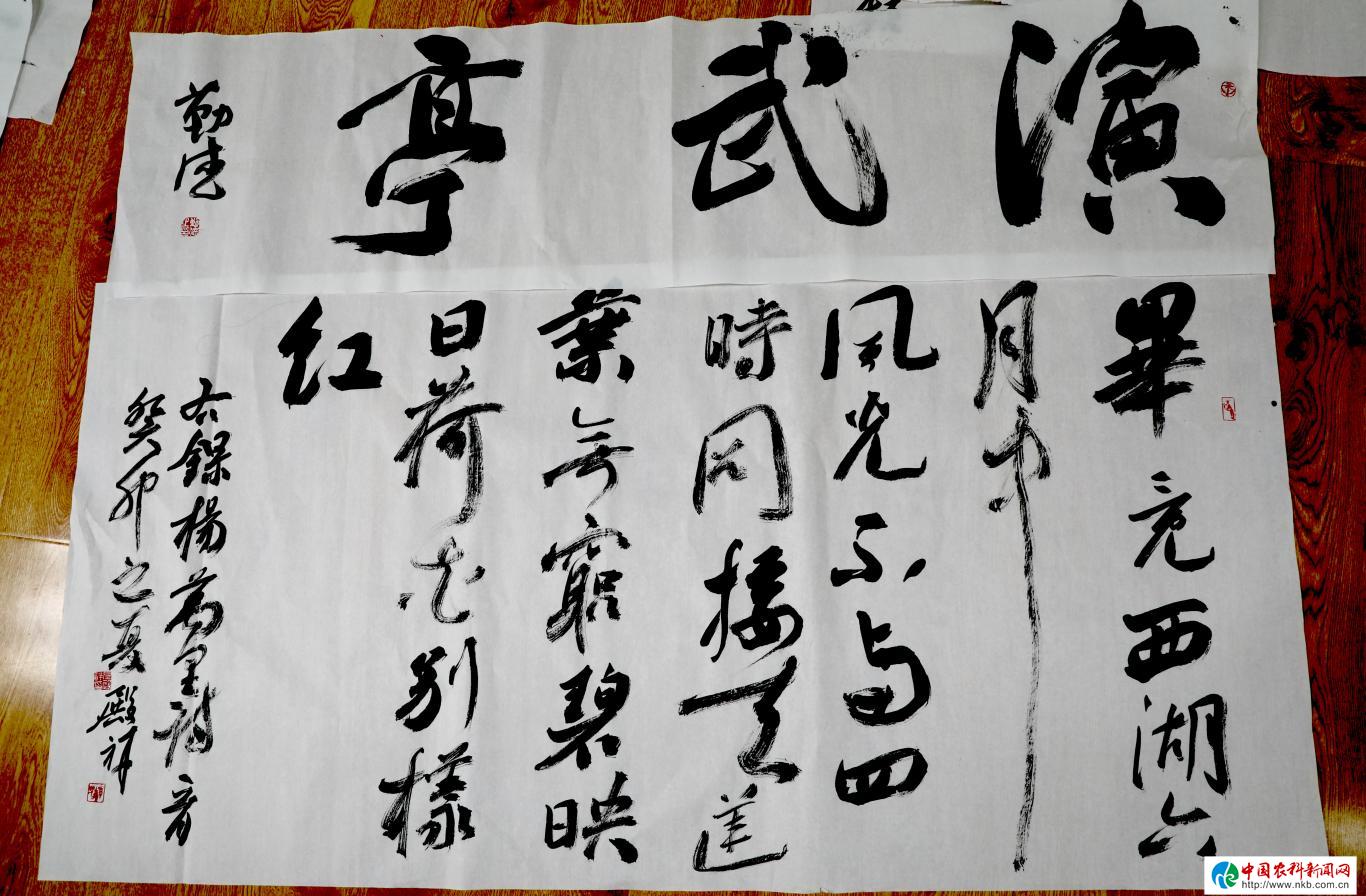 演武亭
勤
畢竟西湖六
月中
風光不与四
時同接天蓮
葉無窮碧映
日荷花别樣
红
右録楊萬里詩首
癸卯之夏殿祥
中国农科新闻网
http://www.nkb.com.cn